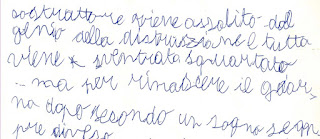 sottrattore viene assalito dal
genio della distruzione e tutta
viene sventrata squartata
– ma per rinascere il gior
no dopo secondo un sogno sem
pre diverso